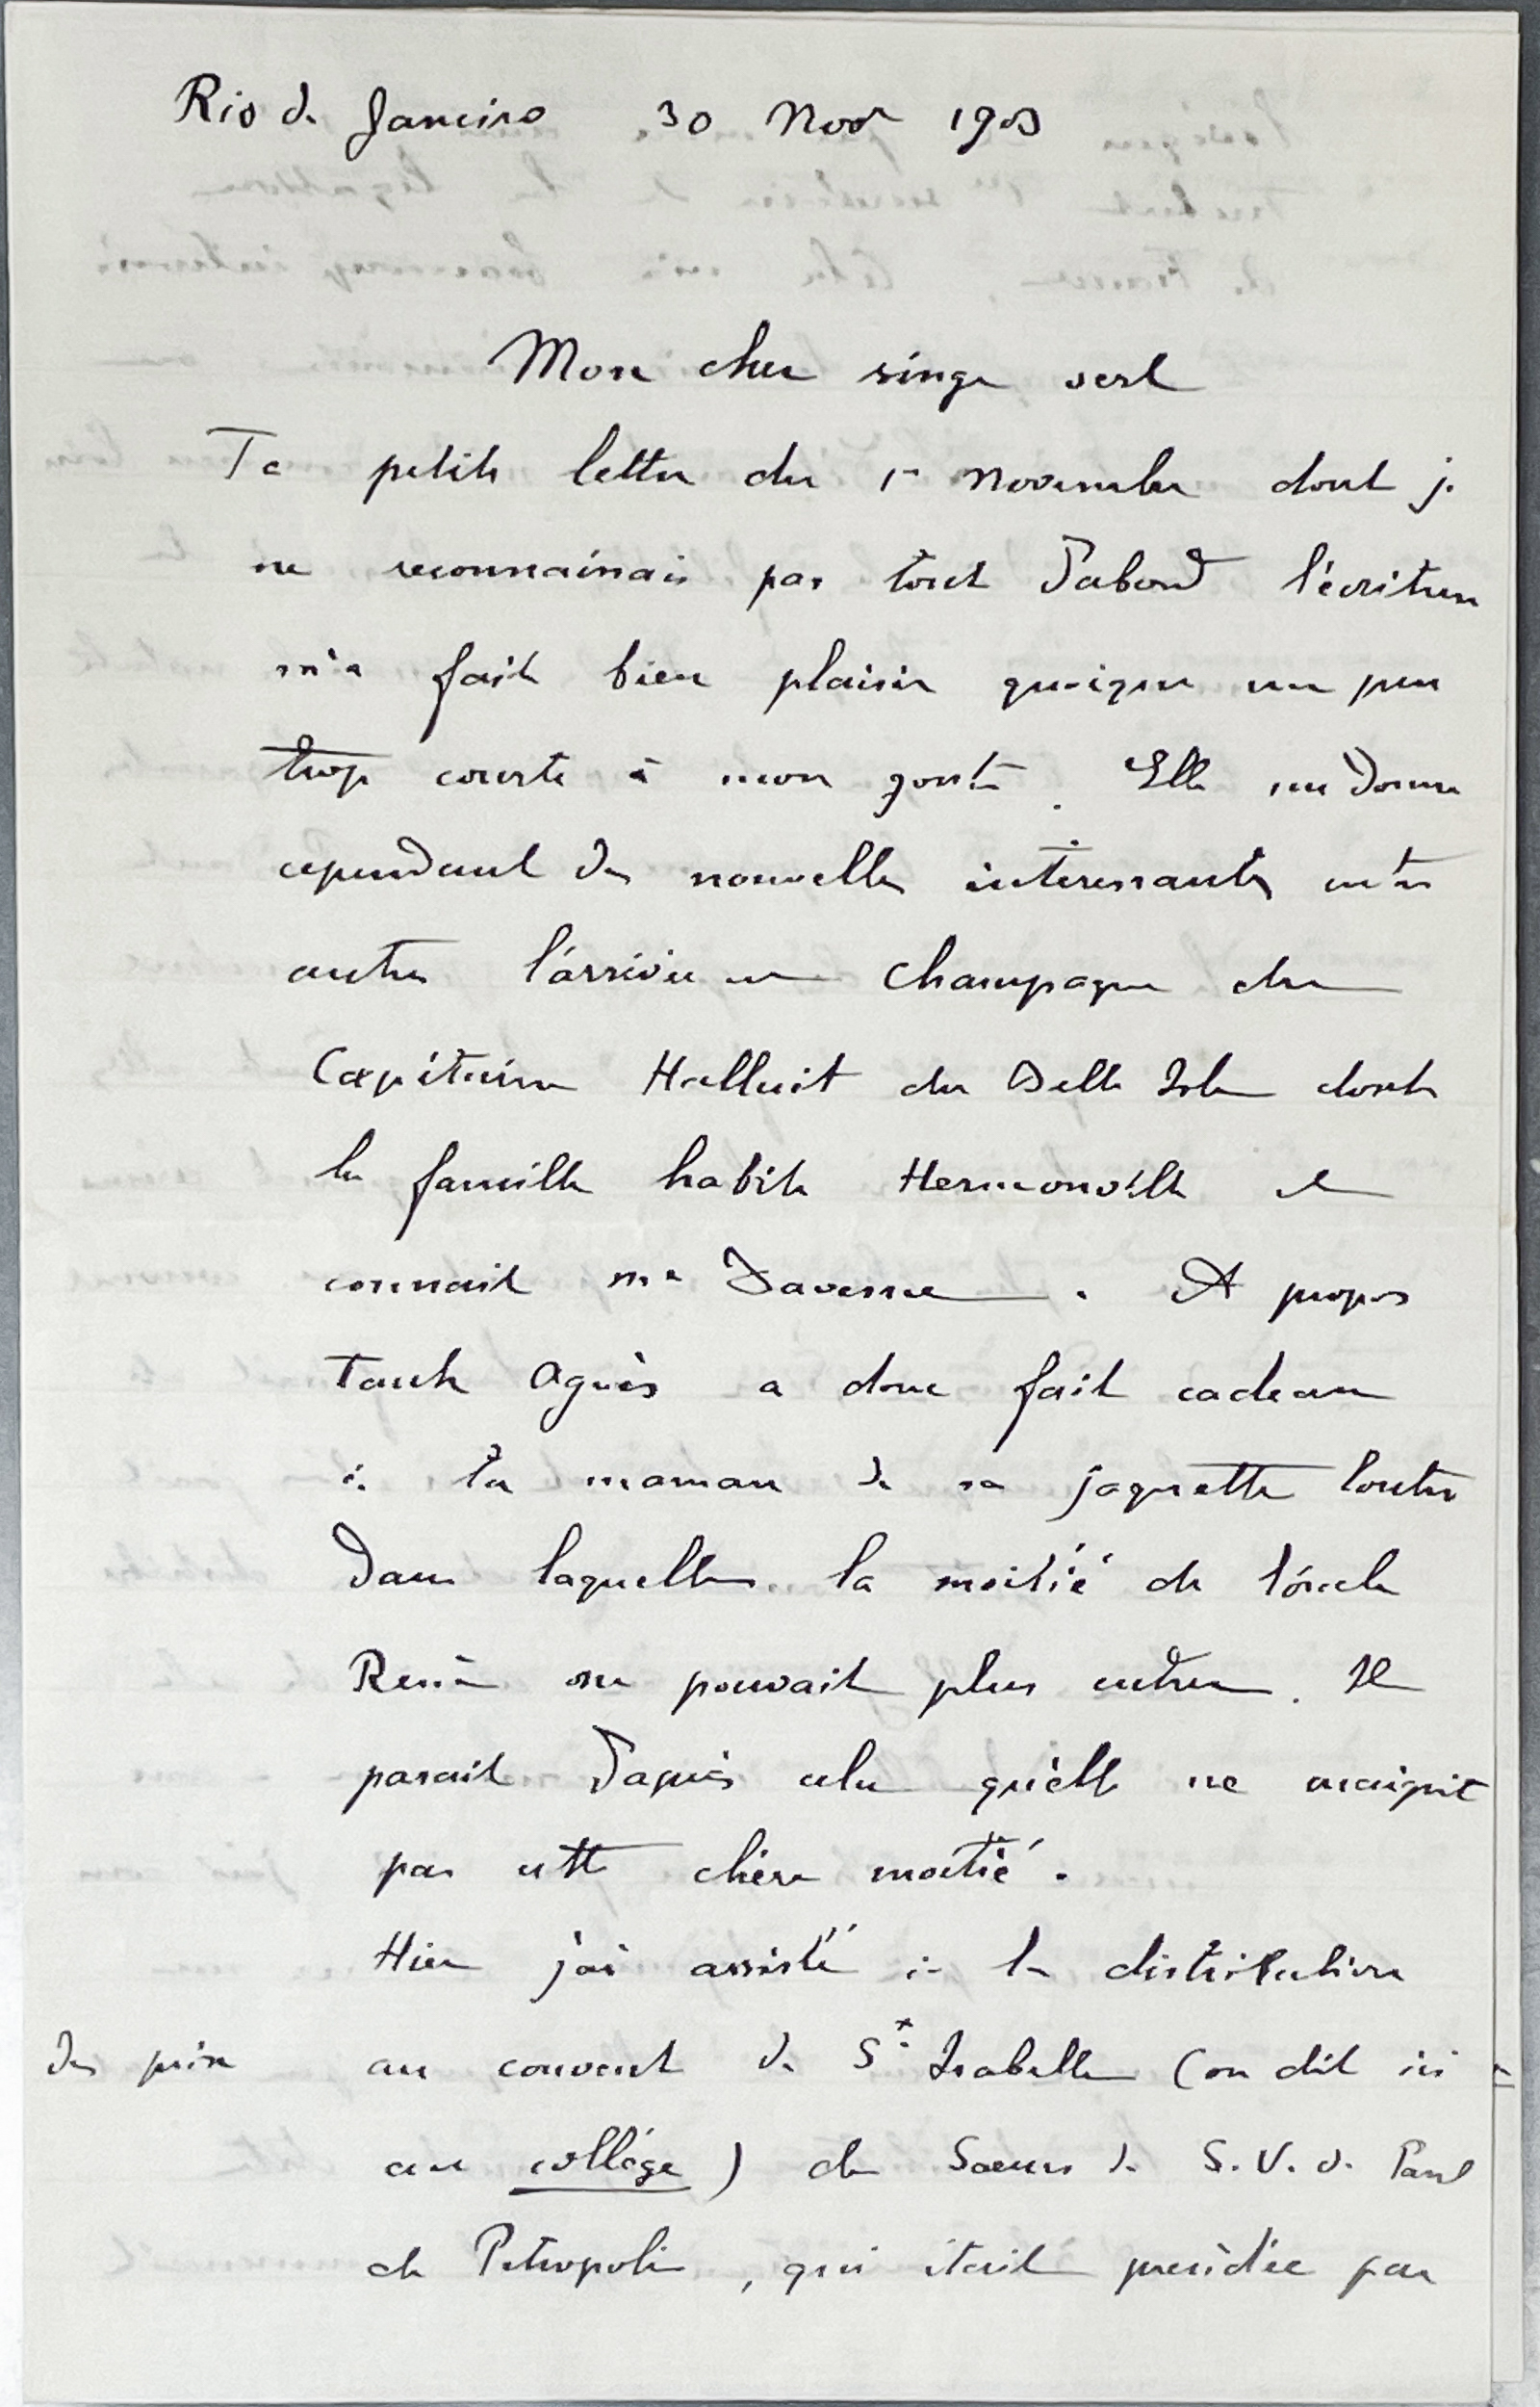 Rio de Janeiro 30 Nov 1903
Mon cher singe vert
Ta petite lettre du 1er novembre dont je
ne reconnaissais pas tout d'abord l'écriture
m'a fait bien plaisir quoique un peu
trop courte à mon goût. Elle me donne
cependant des nouvelles intéressantes entre
autres l'arrivée en Champagne du
Capitaine Halluit du Belle Isle dont
la famille habite Hermonville et
connait Me Daverne. A propos
Tante Agnès a donc fait cadeau
à ta maman de sa jaquette loutre
dans laquelle la moitié de l'oncle
René ne pouvait plus entrer. Il
parait d'après cela qu'elle ne maigrit
pas cette chère moitié.
Hier j'ai assisté à la distribution
des prix au couvent de Ste Isabelle (on dit ici =
au collège) des Soeurs de S. V. de Paul
de Petropolis, qui était présidée par